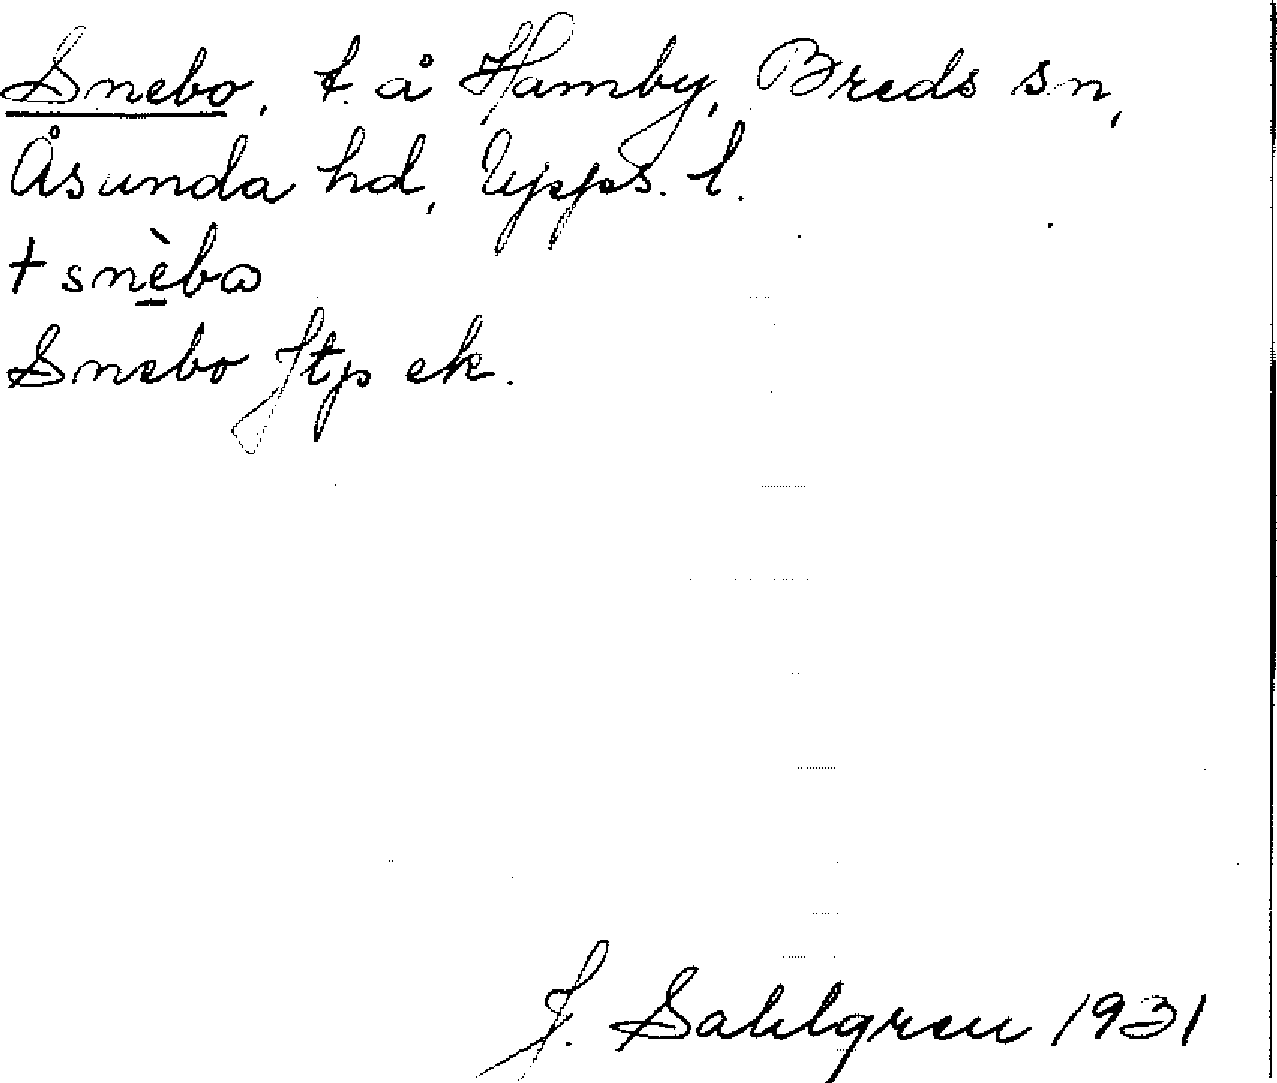 Snebo, t. å Hamby, Breds sn,
Åsunda hd, Upps. l.
+ snèbω
Snebo Jtp ek.
J. Sahlgren 1931